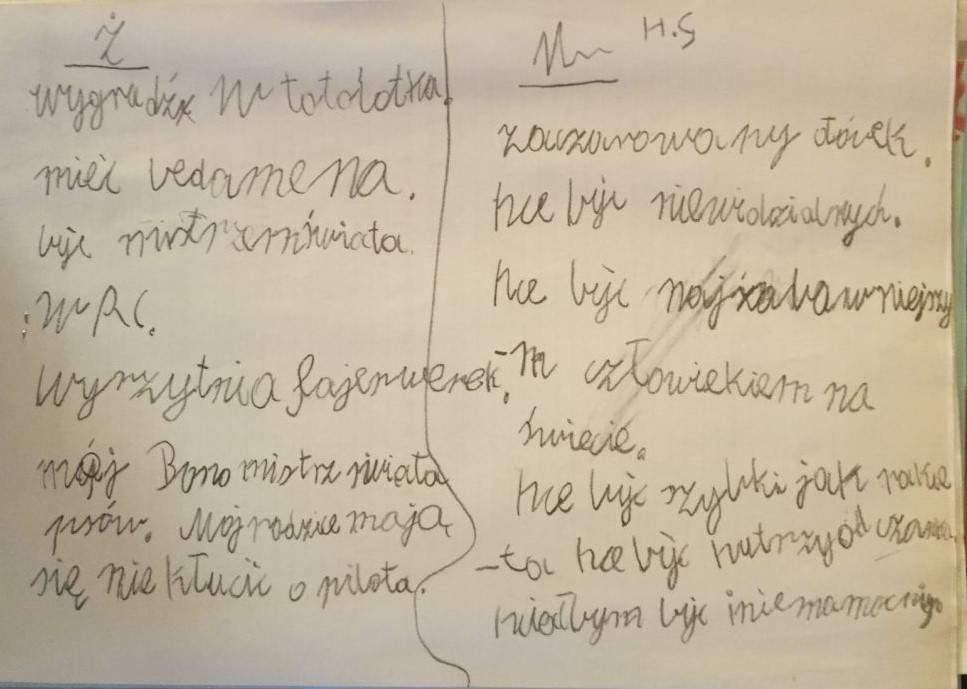 Ż
wygradźx w totolotka.
mieć vedamena.
byc mistrzem świata.
w RC.
wyrzytnia fajerwerek.
mój Bono mistrz świata
psów. Moj rodzice mają
się nie kłucić o pilota.
H.S
zaczarowany
hce byc niewidzialnych.
hce byc najzabawniejszy
-m człowiekiem na
świecie.
hce byc szybki jak rakie
-ta hce byc hutrzy od czarta.
hciałbym byc iniemamocnym